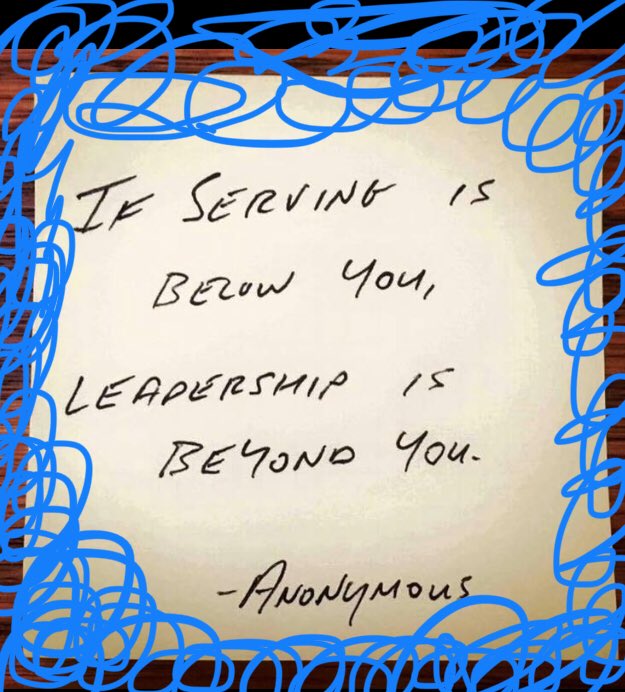 IF SERVING IS
BELOW YOU,
LEADERSHIP IS
BEYOND YOU.
-ANONYMOUS